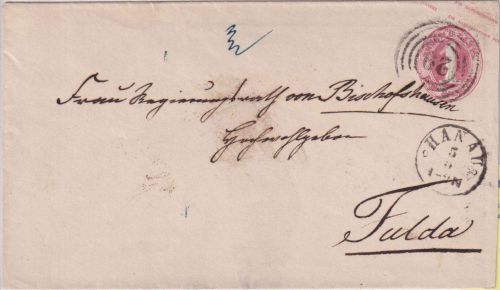 29
Frau Regierungsrath von Bischofshausen
Hochwohlgeboren
HANAU
5
5
Fulda